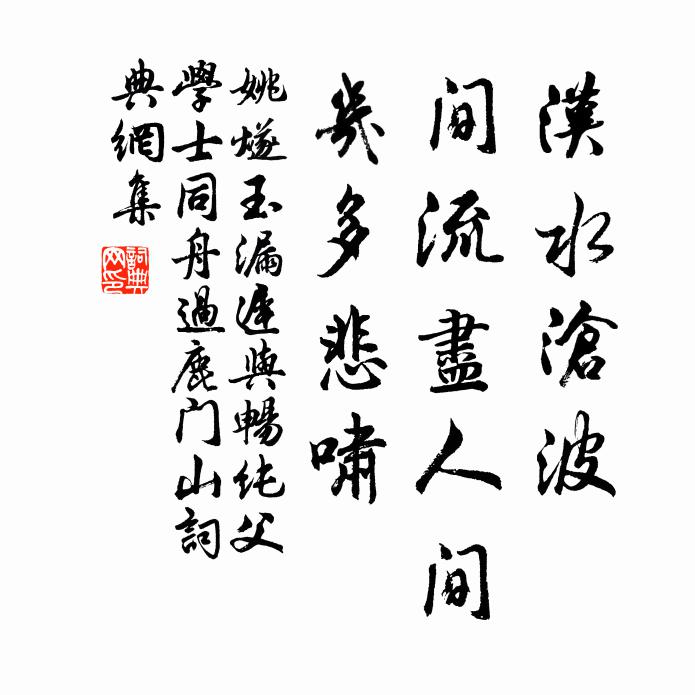 漢水滄波
间流盡人间
幾多悲嘯
姚燧玉漏遲與暢纯父
學士同舟過鹿门山詞
典網集
詞典
网印